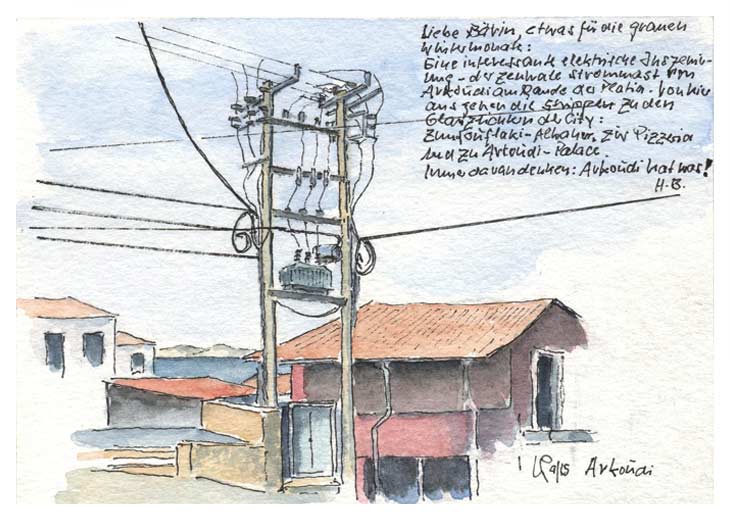 Liebe Bärin, etwas für die grauen
Wintermonate:
Eine interessante elektrische Inszenie-
rung – der zentrale Strommast von
Arkoudi am Rande der Platia. Von hier
aus gehen die Strippen zu den
Glanzpunkten der City:
Zum Souflaki-Alhahier, zur Pizzeria
und zu Arkoudi-Palace.
Immer daran denken: Arkoudi hat was!
H.B.
9/15 Arkoudi